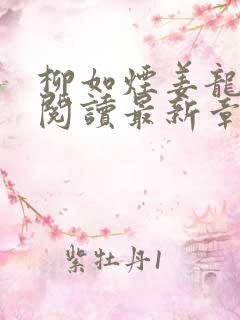 柳如煙姜龍
閱讀最新章
紫牡丹1